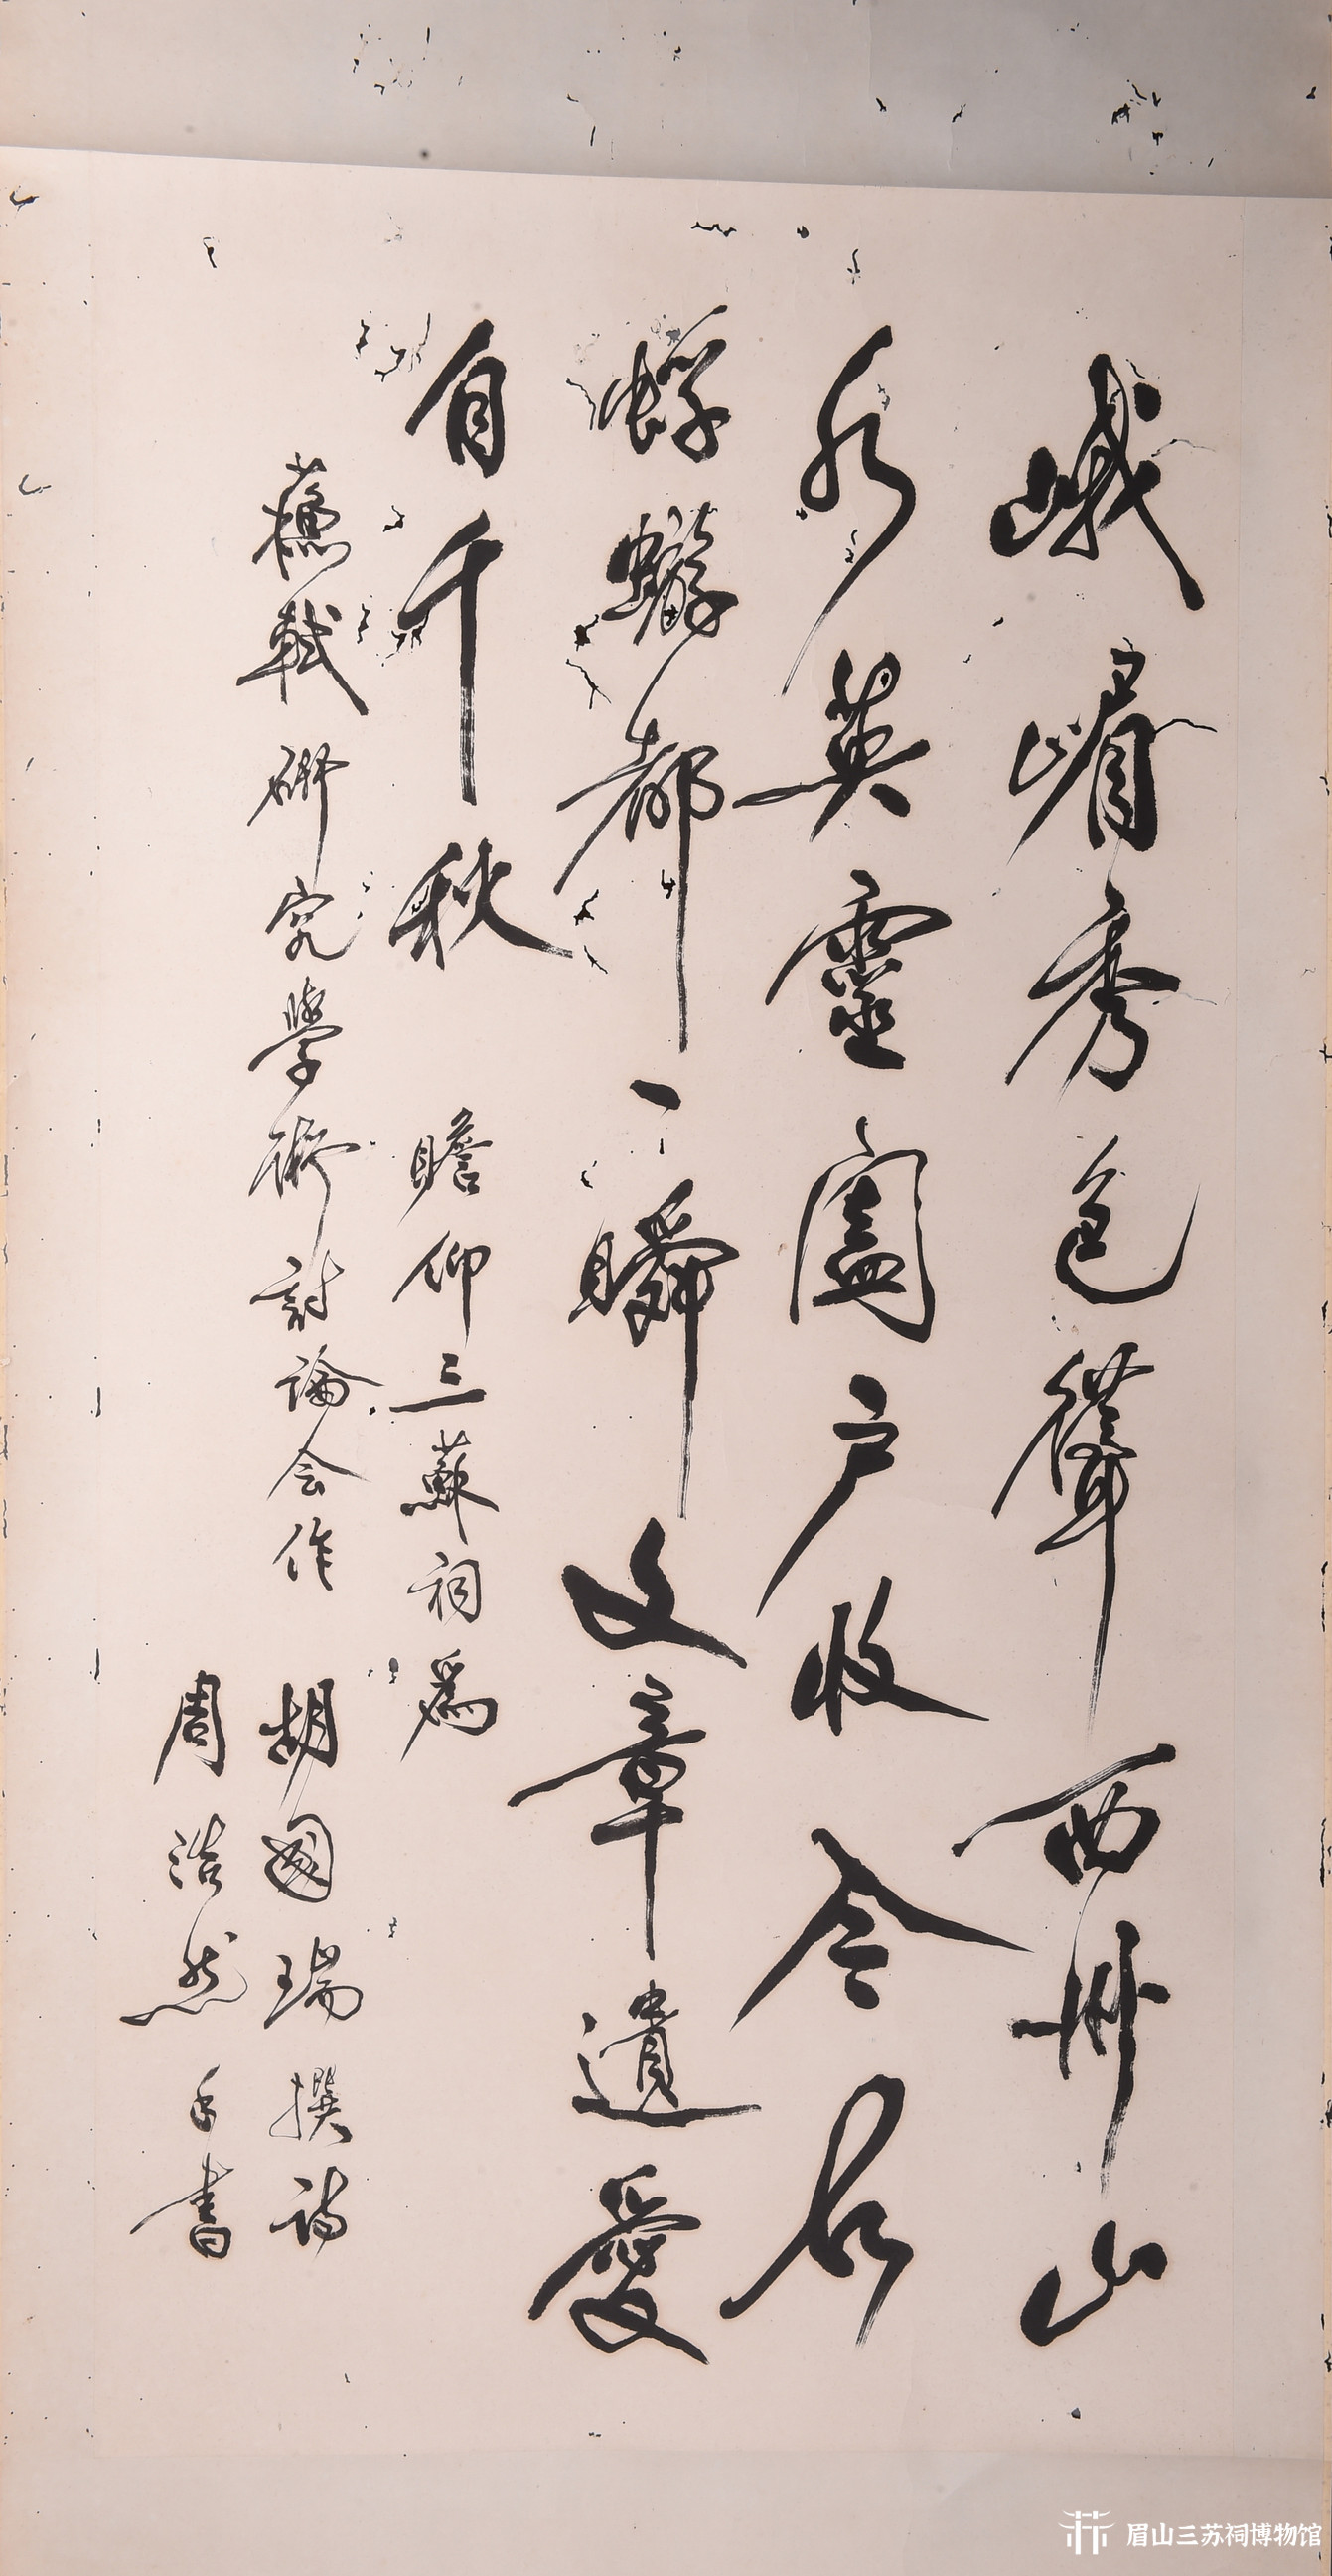 峨嵋秀色聳西州山
水英靈闔户收今古
蜉蝣都一瞬文章遺愛
自千秋 瞻仰三蘇祠爲
蘇軾研究學術討論会作 胡國瑞撰詩
周浩然手書
眉山三苏祠博物馆